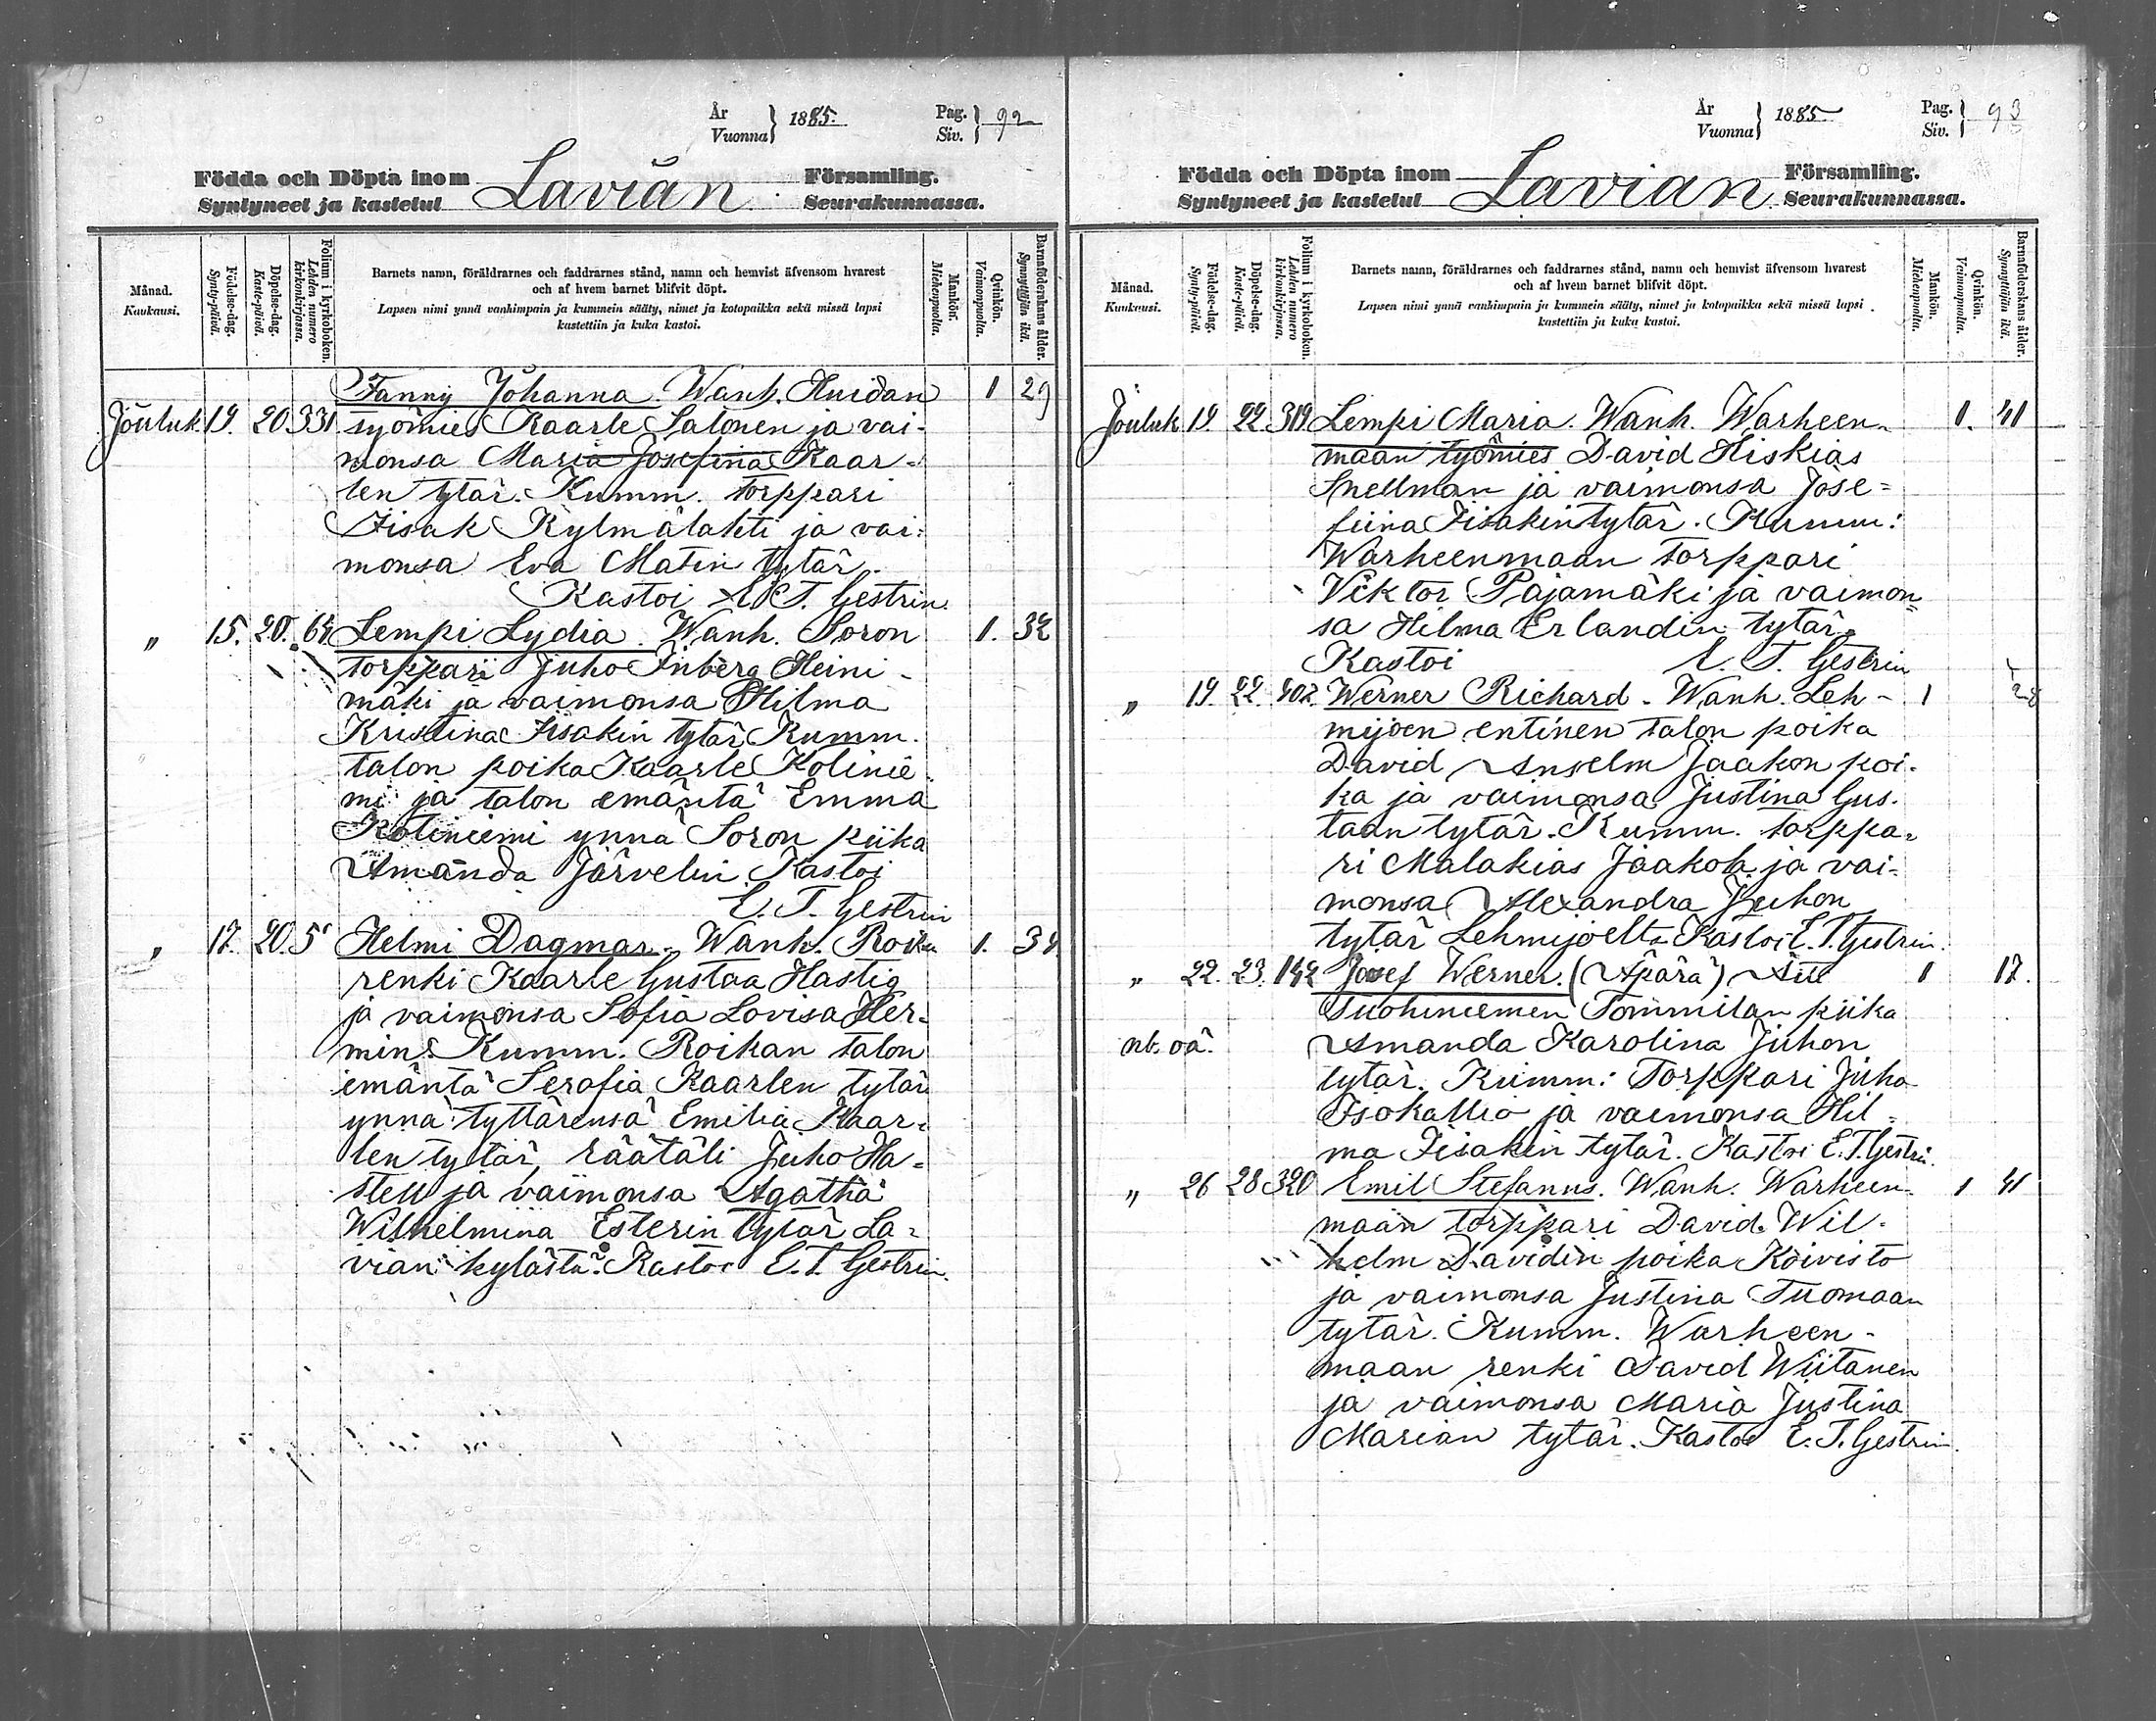 År
Vuonna } 1885.
Pag.
Siv. } 92
Födda och Döpta inom
Syntyneet ja kastetut
Lavian
Församling.
Seurakunnassa.
Månad.
Kuukausi.
Födelse-dag.
Synty-päivä.
Döpelse-dag.
Kaste-päivä.
Folium i kyrkoboken.
Lehden numero
kirkonkirjassa.
Barnets namn, föräldrarnes och faddrarnes stånd, namn och hemvist äfvensom hvarest
och af hvem barnet blifvit döpt.
Lapsen nimi ynnä vanhimpain ja kummein sääty, nimet ja kotopaikka sekä missä lapsi
kastettiin ja kuka kastoi.
Mankön.
Miehenpuolta.
Qvinkön.
Vaimonpuolta.
Barnaföderskans ålder.
Synnyttäjän ikä.
Fanny Johanna. Wanh. Huidan 1 29
Jouluk. 19. 20 331 työmies Kaarle Salonen ja vai-
monsa Maria Josefina Kaar-
len tytär. Kumm. torppari
Iisak Kylmälahti ja vai-
monsa Eva Matin tytär.
Kastoi E. T. Gestrin.
" 15. 20. 64 Lempi Lydia. Wanh. Soron 1. 32
torppari Juho Inberg Heini-
mäki ja vaimonsa Hilma
Kristina Iisakin tytär Kumm.
talon poika Kaarle Kolinie
mi ja talon emäntä Emma
Koliniemi ynnä Soron piika
Amanda Järvelin. Kastoi
E. T. Gestrin
" 17. 20. 5 Helmi Dagmar. Wanh. Roikan 1. 34
renki Kaarle Gustaa Hastig
ja vaimonsa Sofia Lovisa Her-
min. Kumm. Roikan talon
emäntä Serafia Kaarlen tytär
ynnä tyttärensä Emilia Kaar-
len tytär, räätäli Juho Ha-
stell ja vaimonsa Agatha
Wilhelmina Esterin tytär La-
vian kylästä. Kastoi E. T. Gestrin.
År
Vuonna } 1885
Pag.
Siv. } 93
Födda och Döpta inom
Syntyneet ja kastetut
Lavian
Församling.
Seurakunnassa.
Månad.
Kuukausi.
Födelse-dag.
Synty-päivä.
Döpelse-dag.
Kaste-päivä.
Folium i kyrkoboken.
Lehden numero
kirkonkirjassa.
Barnets namn, föräldrarnes och faddrarnes stånd, namn och hemvist äfvensom hvarest
och af hvem barnet blifvit döpt.
Lapsen nimi ynnä vanhimpain ja kummein sääty, nimet ja kotopaikka sekä missä lapsi
kastettiin ja kuka kastoi.
Mankön.
Miehenpuolta.
Qvinkön.
Vaimonpuolta.
Barnaföderskans ålder.
Synnyttäjän ikä.
Jouluk. 19. 22. 319 Lempi Maria. Wanh. Warheen- 1. 41
maan työmies David Hiskias
Snellman ja vaimonsa Jose-
fiina Iisakin tytär. Kumm:
Warheenmaan torppari
Viktor Pajamäki ja vaimon-
sa Hilma Erlandin tytär.
Kastoi E. T. Gestrin
" 19. 22. 402. Werner Richard. Wanh. Leh- 1 28
mijoen entinen talon poika
David Anselm Jaakon poi-
ka ja vaimonsa Justina Gus-
taan tytär. Kumm. torppa-
ri Malakias Jaakola ja vai-
monsa Alexandra Juhon
tytär Lehmijoelta Kastoi E. T. Gestrin.
" 22. 23. 142 Josef Werner. (Äpärä) Äiti 1 17.
Suoniemen Tommilan piika
nb. oä. Amanda Karolina Juhon
tytär. Kumm: Torppari Juho
Isokallio ja vaimonsa Hil-
ma Iisakin tytär. Kastoi E. T. Gestrin.
" 26 28 320 Emil Stefanus. Wanh. Warheen- 1 41
maan torppari David Wil-
helm Davidin poika Koivisto
ja vaimonsa Justina Tuomaan
tytär. Kumm. Warheen-
maan renki David Wiitanen
ja vaimonsa Maria Justina
Marian tytär. Kastoi E. T. Gestrin.